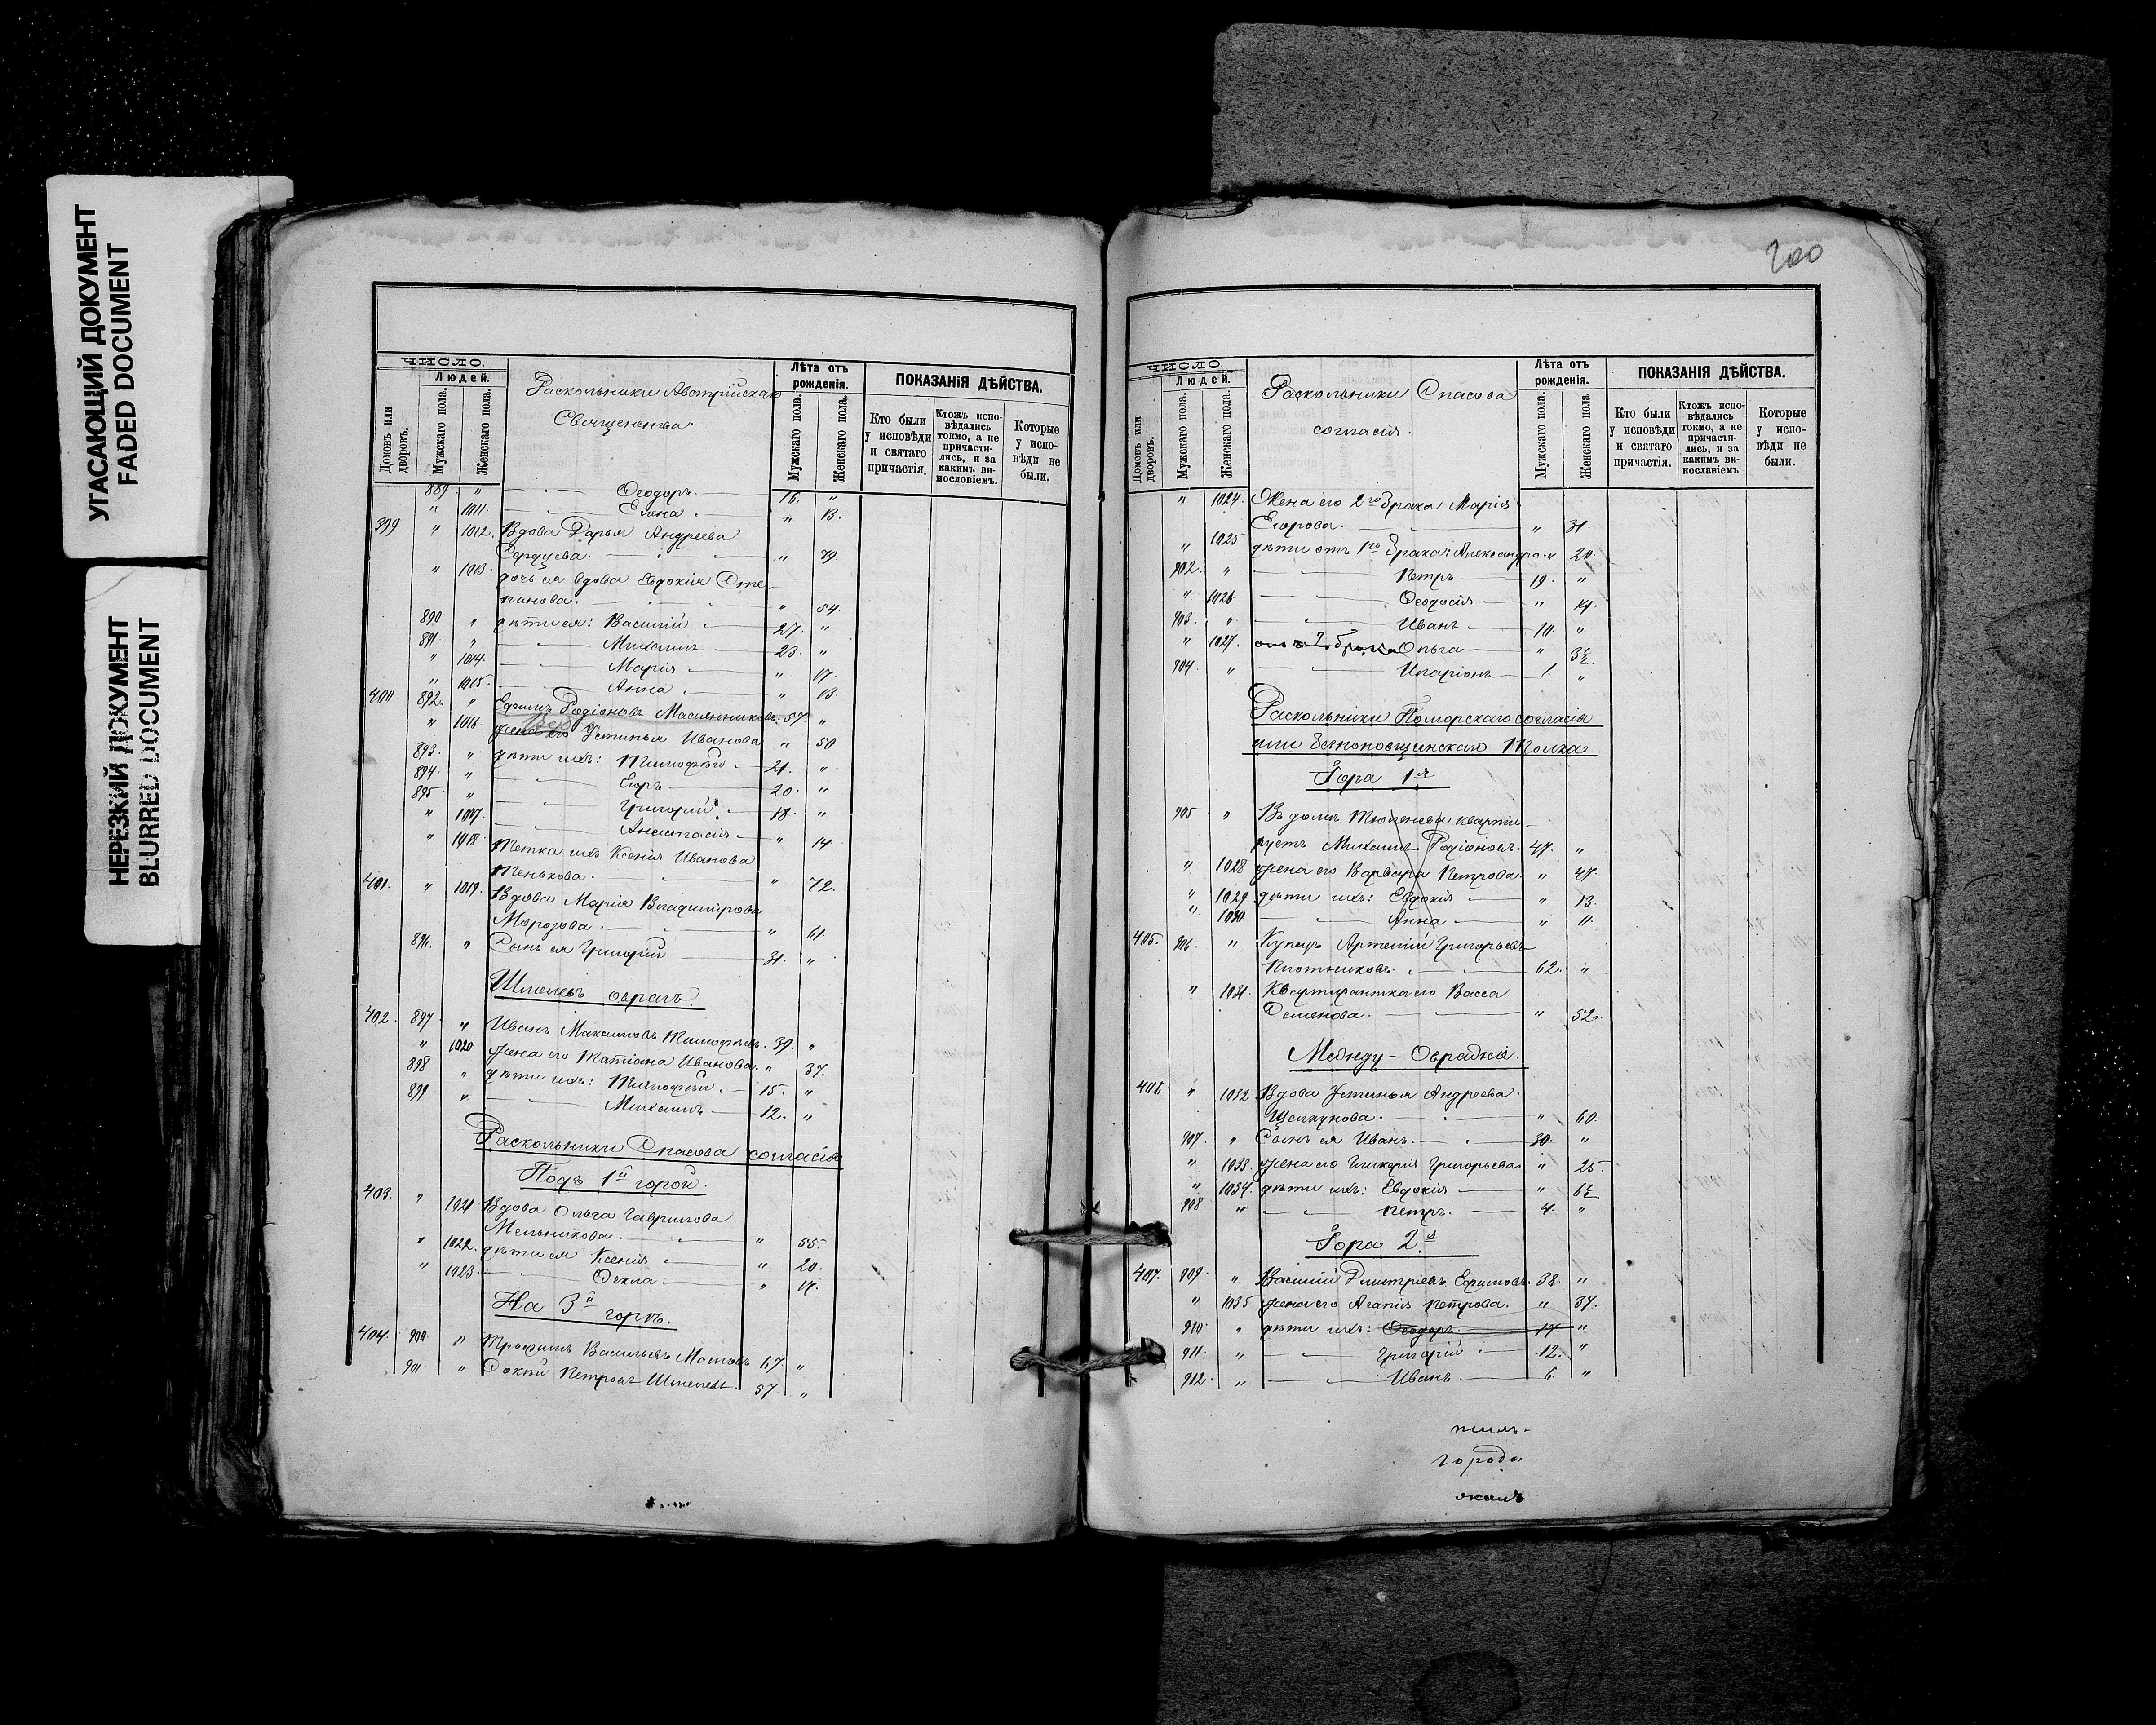 УГАСАЮЩИЙ ДОКУМЕНТ
FADED DOCUMENT
НЕРЕЗКИЙ ДОКУМЕНТ
BLURRED DOCUMENT
ЧИСЛО.
Людей.
Домовъ или дворовъ.
Мужскаго пола.
Женскаго пола.
Раскольники Австрійскаго
Священства
Лѣта отъ рожденія.
Мужскаго пола.
Женскаго пола.
ПОКАЗАНІЯ ДѢЙСТВА.
Кто были у исповѣди и святаго причастія.
Ктожъ исповѣдались токмо, а не причастились, и за какимъ винословіемъ.
Которые у исповѣди не были.
889 " Ѳеодоръ 16. "
" 1011. Елена " 13.
399 " 1012. Вдова Дарья Андреева
Сердцева. " 79.
" 1013. дочь ея вдова Евдокія Сте-
панова. " 54.
890. " дѣти ея: Василій 27. "
891. " Михаилъ 23. "
" 1014. Марія " 17.
" 1015. Анна " 13.
400. 892. " Ефимъ Родіоновъ Масленниковъ. 57. "
" 1016. жена его Устинья Иванова " 50
893. " дѣти ихъ: Тимофей 21. "
894. " Егоръ 20. "
895 " Григорій 18. "
" 1017. Анастасія " 14
" 1018. Тетка ихъ Ксенія Иванова
Пенькова. " 72.
401. " 1019. Вдова Марія Владимірова
Морозова. " 61.
896. " Сынъ ея Григорій 31. "
Шмелевъ оврагъ.
402. 897 " Иванъ Максимовъ Тимофеевъ. 39. "
" 1020 жена его Татіана Иванова. " 37.
898 " дѣти ихъ: Тимофей. 15. "
899 " Михаилъ 12. "
Раскольники Спасова согласія
Подъ 1й горой.
403. " 1021 Вдова Ольга Гаврилова
Мельникова. " 55.
" 1022. дѣти ея Ксенія " 20.
" 1023. Ѳекла " 17.
На 3й горѣ.
404. 900. " Трофимъ Васильевъ 67. "
901 " Петровъ Шмелевъ 57. "
200
ЧИСЛО
Людей.
Домовъ или дворовъ.
Мужскаго пола.
Женскаго пола.
Раскольники Спасова
согласія.
Лѣта отъ рожденія.
Мужскаго пола.
Женскаго пола
ПОКАЗАНІЯ ДѢЙСТВА.
Кто были у исповѣди и святаго причастія.
Ктожъ исповѣдались токмо, а не причастились, и за какимъ винословіемъ
Которые у исповѣди не были.
" 1024. Жена его 2го брака Марія
Егорова. " 31.
" 1025 дѣти отъ 1го брака: Александра " 20.
902. " Петръ 19. "
" 1026 Ѳеодосія " 14.
903. " Иванъ 10. "
" 1027. отъ 2 брака Ольга " 3½
904. " Иларіонъ 1. "
Раскольники Поморскаго согласія
или толка
Гора 1я
905 " Въ домѣ Тюленева кварти-
руетъ Михаилъ Родіоновъ. 47. "
" 1028 жена его Варвара Петрова. " 47.
" 1029 дѣти ихъ: Евдокія " 13.
" 1030 Анна " 11.
405. 906. " Купецъ Артемій Григорьевъ
Плотниковъ. 62. "
" 1031. Квартирантка его Васса
Семенова. " 52.
Между-Овражие.
406 " 1032. Вдова Устинья Андреева
Щелкунова. " 60.
907. " Сынъ ея Иванъ. 30. "
" 1033. жена его Гликерія Григорьева " 25.
" 1034. дѣти ихъ: Евдокія " 6½
908 " Петръ. 4. "
Гора 2я
407. 909. " Василій Дмитріевъ Ефимовъ. 38. "
" 1035 жена его Агапія Петрова. " 37.
910 " дѣти ихъ: Ѳеодоръ. 17. "
911. " Григорій 12. "
912. " Иванъ. 6. "
города